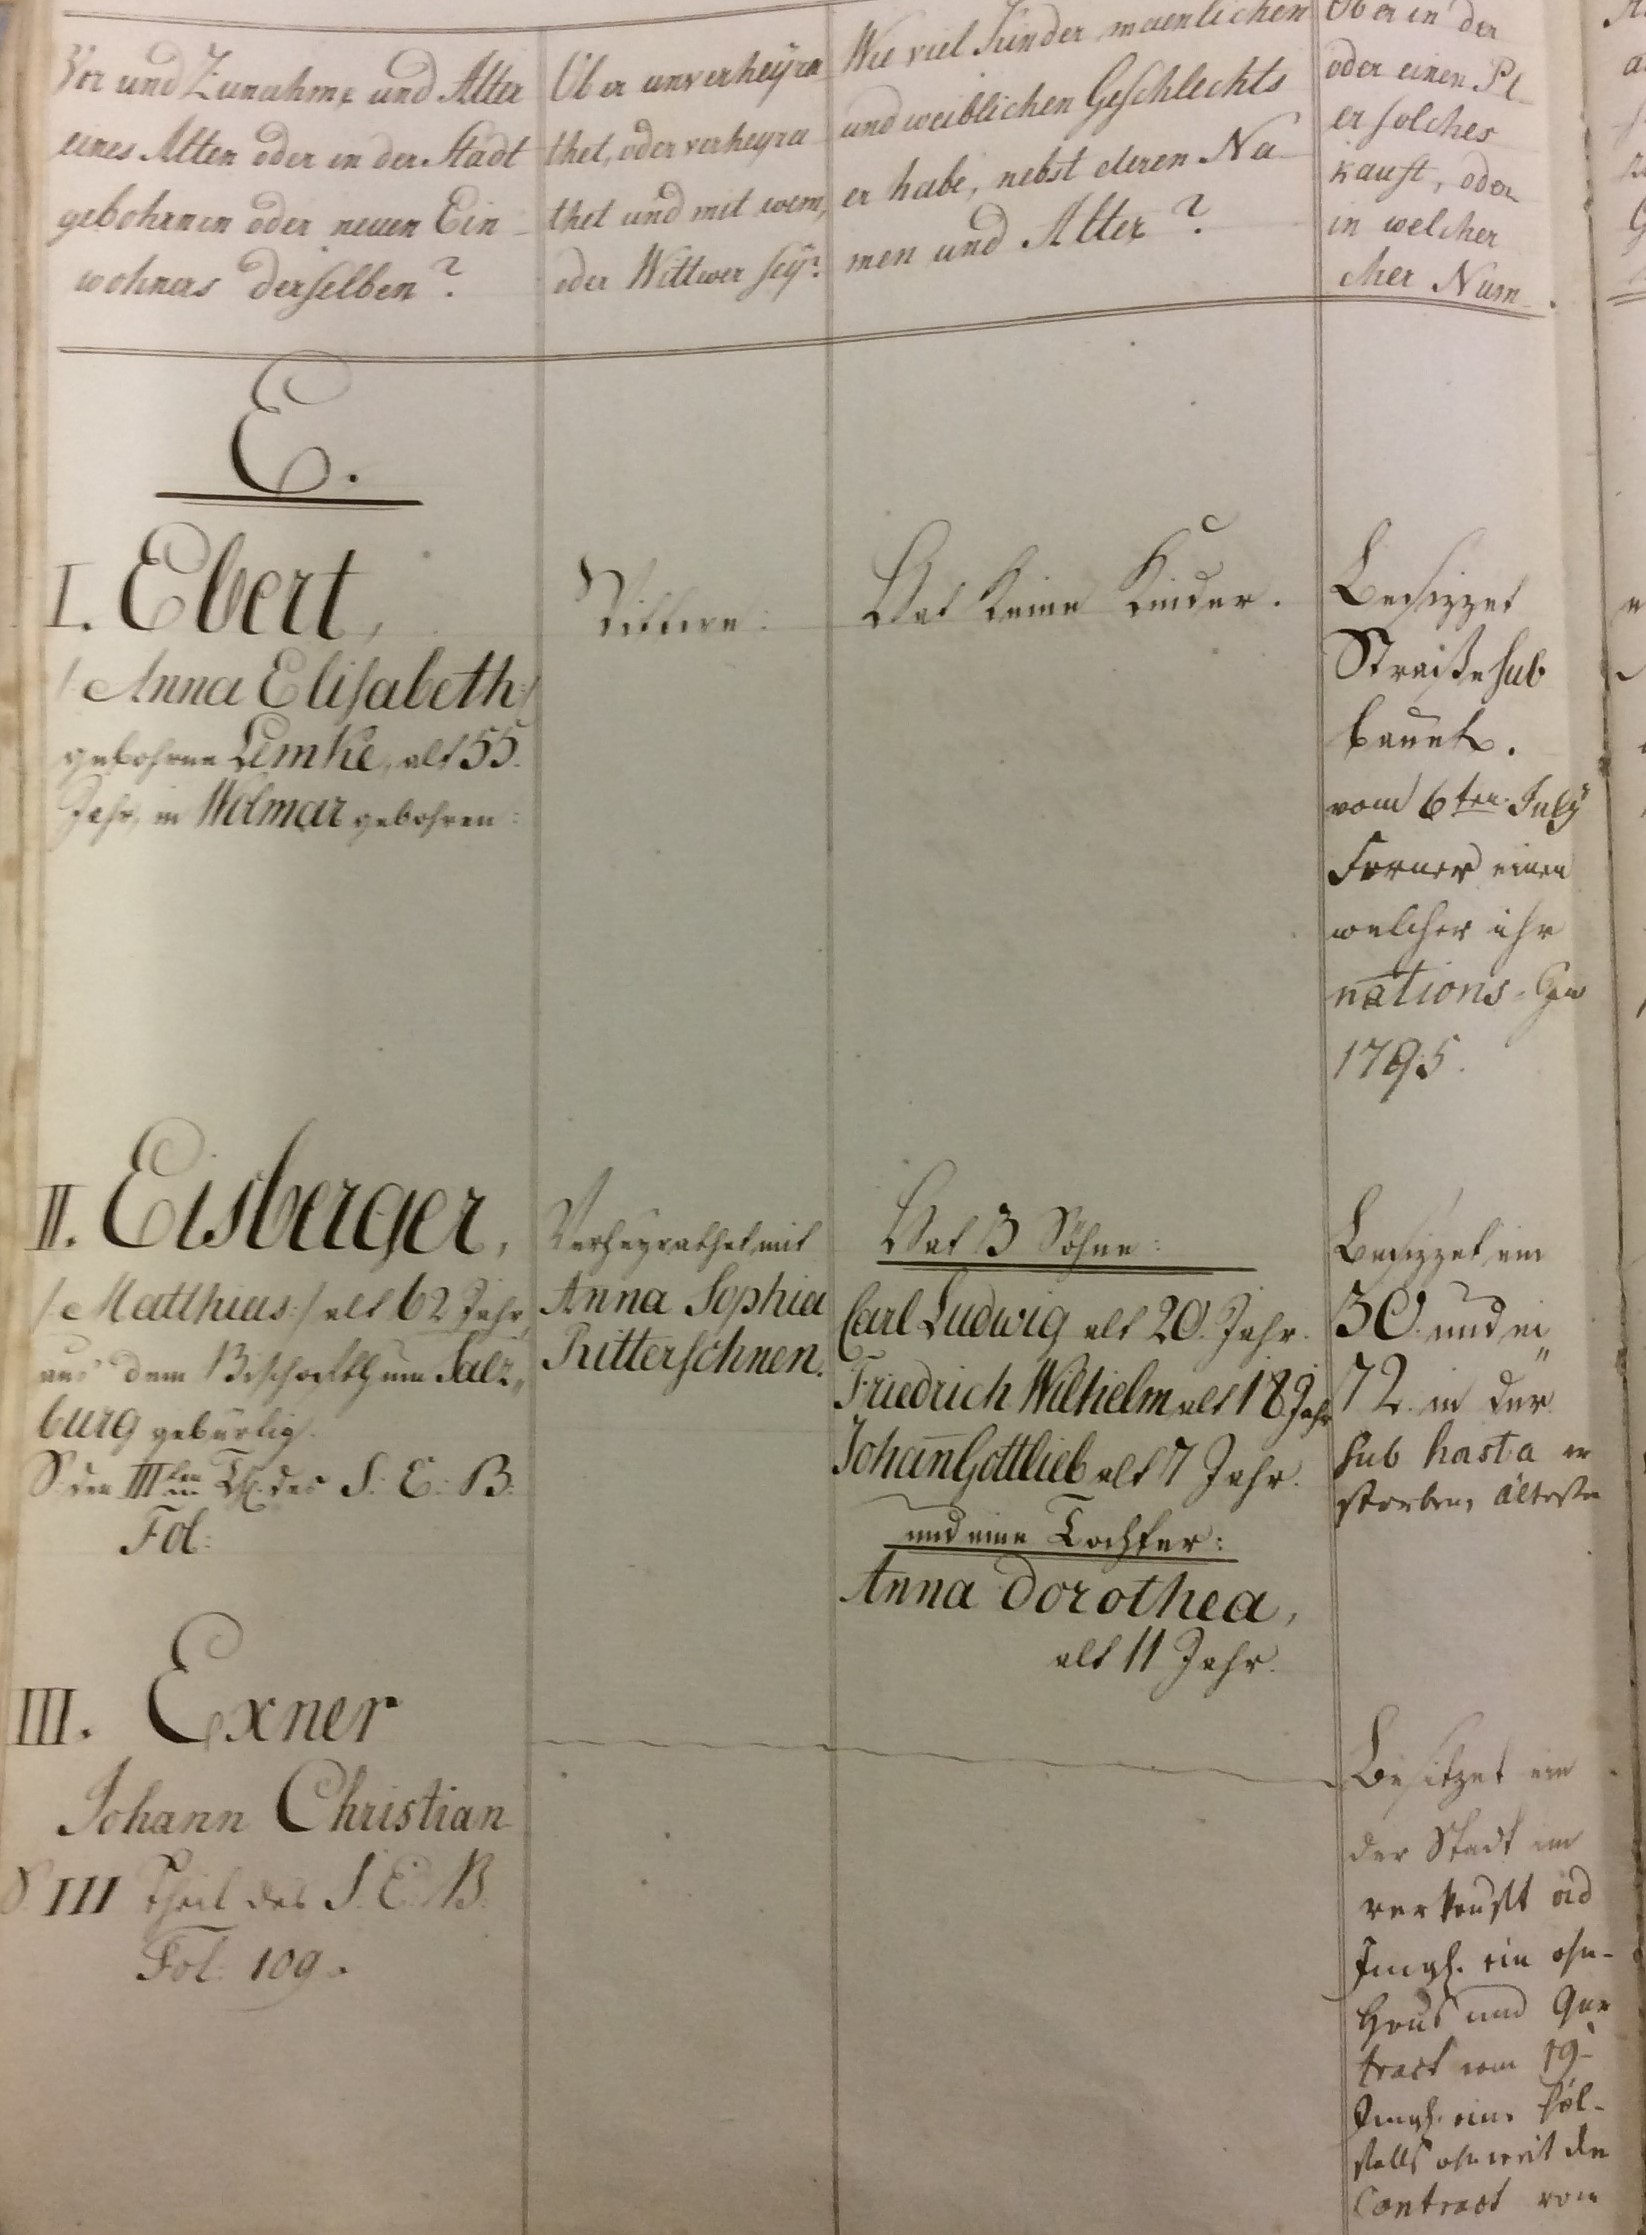 Vor und Zunahme und Alter
eines Alten oder in der Stadt
gebohrnen oder neuen Ein
wohners derselben?
Ob er unverheyra
thet, oder verheyra
thet und mit wem,
oder Wittwer sey?
Wie viel Kinder maenlichen
und weiblichen Geschlechts
er habe, nebst deren Na
men und Alter?
Ob er in der
oder einen Pl
er solches
kauft, oder
in welcher
cher Num
E.
I. Ebert,
/: Anna Elisabeth :/
gebohrne Lemke, alt 55.
Jahr, in Wolmar gebohren:
Wittwe:
Hat keine Kinder.
Besizzet
Straße sub
bauet.
vom 6ten July
Ferner einen
welcher ihr
nations-
1795.
II. Eisberger,
/: Matthias :/ alt 62 Jahr,
aus dem Bischofthum Salz„
burg gebürtig.
S. den IIIten Th. des S. E. B.
Fol:
Verheyrathet mit
Anna Sophia
Ritterschnen.
Hat 3 Söhne:
Carl Ludwig alt 20. Jahr.
Friedrich Wilhelm alt 18 Jahr
Johann Gottlieb alt 7 Jahr.
und eine Tochter:
Anna Dorothea,
alt 11 Jahr.
Besizzet ein
30. und ei„
72. in der
sub hasta er
storben, älteste
III. Exner
Johann Christian
S. III Theil des S. E. B.
Fol: 109.
Besitzet ein
der Stadt im
verkauft ad
Imgl. ein
Haus und Gar
tract vom 19
Imgl. eine
stalls ohnweit de
Contract vom